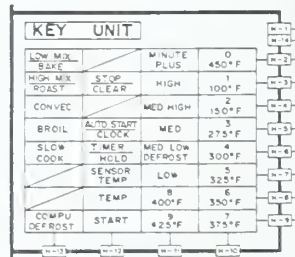 KEY UNIT
LOW MIX
BAKE
MINUTE
PLUS
0
450°F
HIGH MIX
ROAST
STOP
CLEAR
HIGH
1
100°F
CONVEC
MED HIGH
2
150°F
BROIL
AUTO START
CLOCK
MED
3
275°F
SLOW
COOK
TIMER
HOLD
MED LOW
DEFROST
4
300°F
SENSOR
TEMP
LOW
5
325°F
TEMP
8
400°F
6
350°F
COMPU
DEFROST
START
9
425°F
7
375°F
N-1
N-14
N-2
N-3
N-4
N-5
N-6
N-7
N-8
N-9
N-13
N-12
N-11
N-10